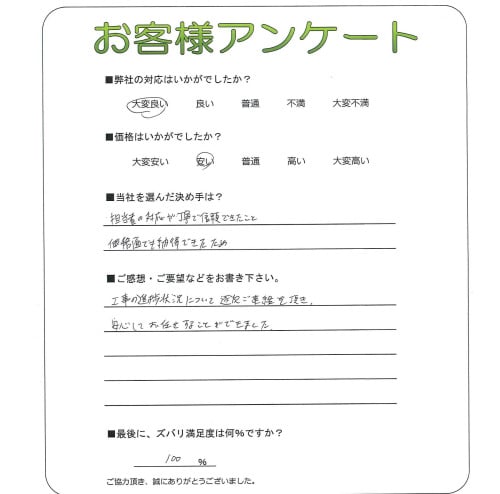 お客様アンケート
■弊社の対応はいかがでしたか？
大変良い 良い 普通 不満 大変不満
■価格はいかがでしたか？
大変安い 安い 普通 高い 大変高い
■当社を選んだ決め手は？
担当者の対応が丁寧で信頼できたこと
価格面でも納得できたため
■ご感想・ご要望などをお書き下さい。
工事の進捗状況について適宜ご連絡を頂き、
安心してお任せすることができました
■最後に、ズバリ満足度は何％ですか？
100 ％
ご協力頂き、誠にありがとうございました。